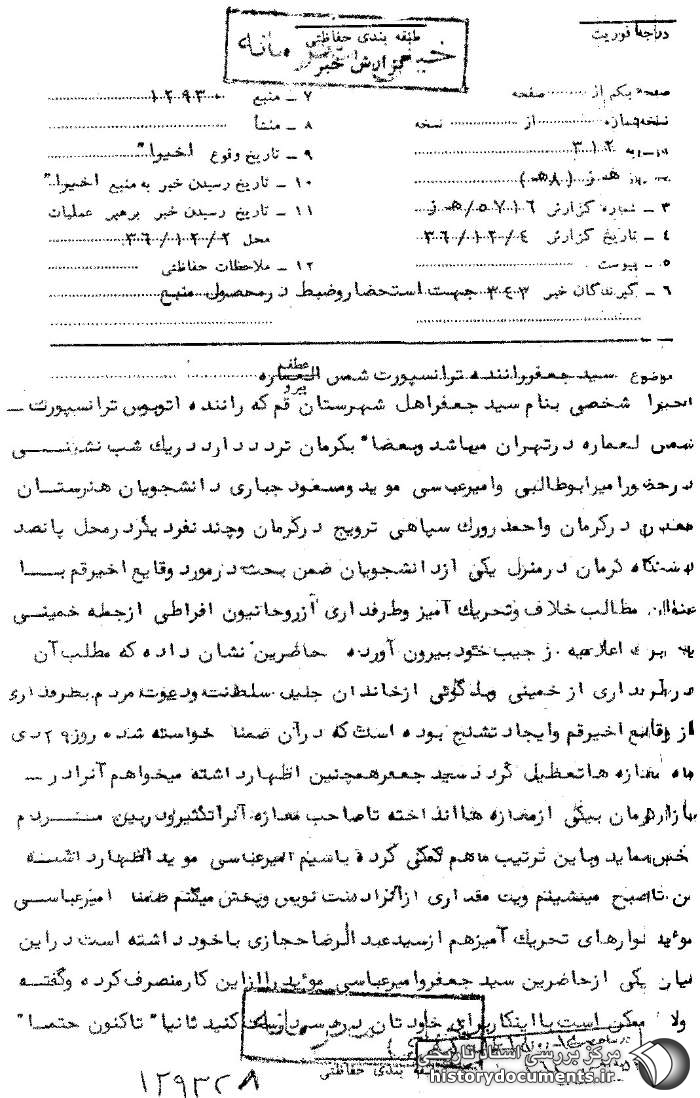 درجه فوریت
طبقه بندی حفاظتی
گزارش خبر
صفحه یکم از صفحه
۷ – منبع ۱۲۹۳۰
نسخه شماره از نسخه
۸ – منشأ
۳۱۲
۹ – تاریخ وقوع اخیرا"
۱۰ – تاریخ رسیدن خبر به منبع اخیرا"
۳ – شماره گزارش ۵۷۱۶/ه‍ز
۱۱ – تاریخ رسیدن خبر برهبر عملیات
۴ – تاریخ گزارش ۳۶/۱۲/۴
محل ۳۶/۱۲/۲
۵ – پیوست
۱۲ – ملاحظات حفاظتی
۶ – گیرندگان خبر ۳۴۳ جهت استحضار وضبط در محصول منبع
موضوع سید جعفر راننده ترانسپورت شمس العماره
عطف
پیرو
اخیرا شخصی بنام سید جعفر اهل شهرستان قم که راننده اتوبوس ترانسپورت –
شمس لعماره در تهران میباشد وبعضا" بکرمان تردد دارد در یک شب نشینی
در حضور امیر ابوطالبی وامیر عباسی موید ومسعود جباری دانشجویان هنرستان
معدن در کرمان واحمد سپاهی ترویج در کرمان وچند نفر دیگر در محل پانصد
دستگاه کرمان در منزل یکی از دانشجویان ضمن بحث در مورد وقایع اخیر قم با
عنوان مطالب خلاف وتحریک آمیز وطرفداری از روحانیون افراطی از جمله خمینی
اعلامیه ز جیب خود بیرون آورده حاضرین نشان داده که مطلب آن
در طرفداری از خمینی وبدگوئی از خاندان جلیل سلطنت ودعوت مردم بطرفداری
از وقایع اخیر قم وایجاد تشنج بوده است که در آن ضمنا خواسته شده روز ۲۹ دی
ماه مغازه ها تعطیل گردند سید جعفر همچنین اظهار داشته میخواهم آنرا در –
بازار کرمان بیکی از مغازه ها انداخته تا صاحب مغازه آنرا تکثیر ودر بین مردم
پخش نماید وباین ترتیب ماهم کمکی کرده باشیم امیر عباسی موید اظهار داشته
من تا صبح مینشینم ویک مقداری از آنرا دست نویس وپخش میکنم ضمنا امیر عباسی
موئید نوارهای تحریک آمیز هم از سید عبدالرضا حجازی با خود داشته است در این
میان یکی از حاضرین سید جعفر وامیر عباسی موئید را از این کار منصرف کرده وگفته
ولا" ممکن است با اینکار برای خودتان دردسر درست کنید ثانیا" تاکنون حتما"
طبقه بندی حفاظتی
۱۲۹۳۲۸
مرکز بررسی اسناد تاریخی
historydocuments.ir